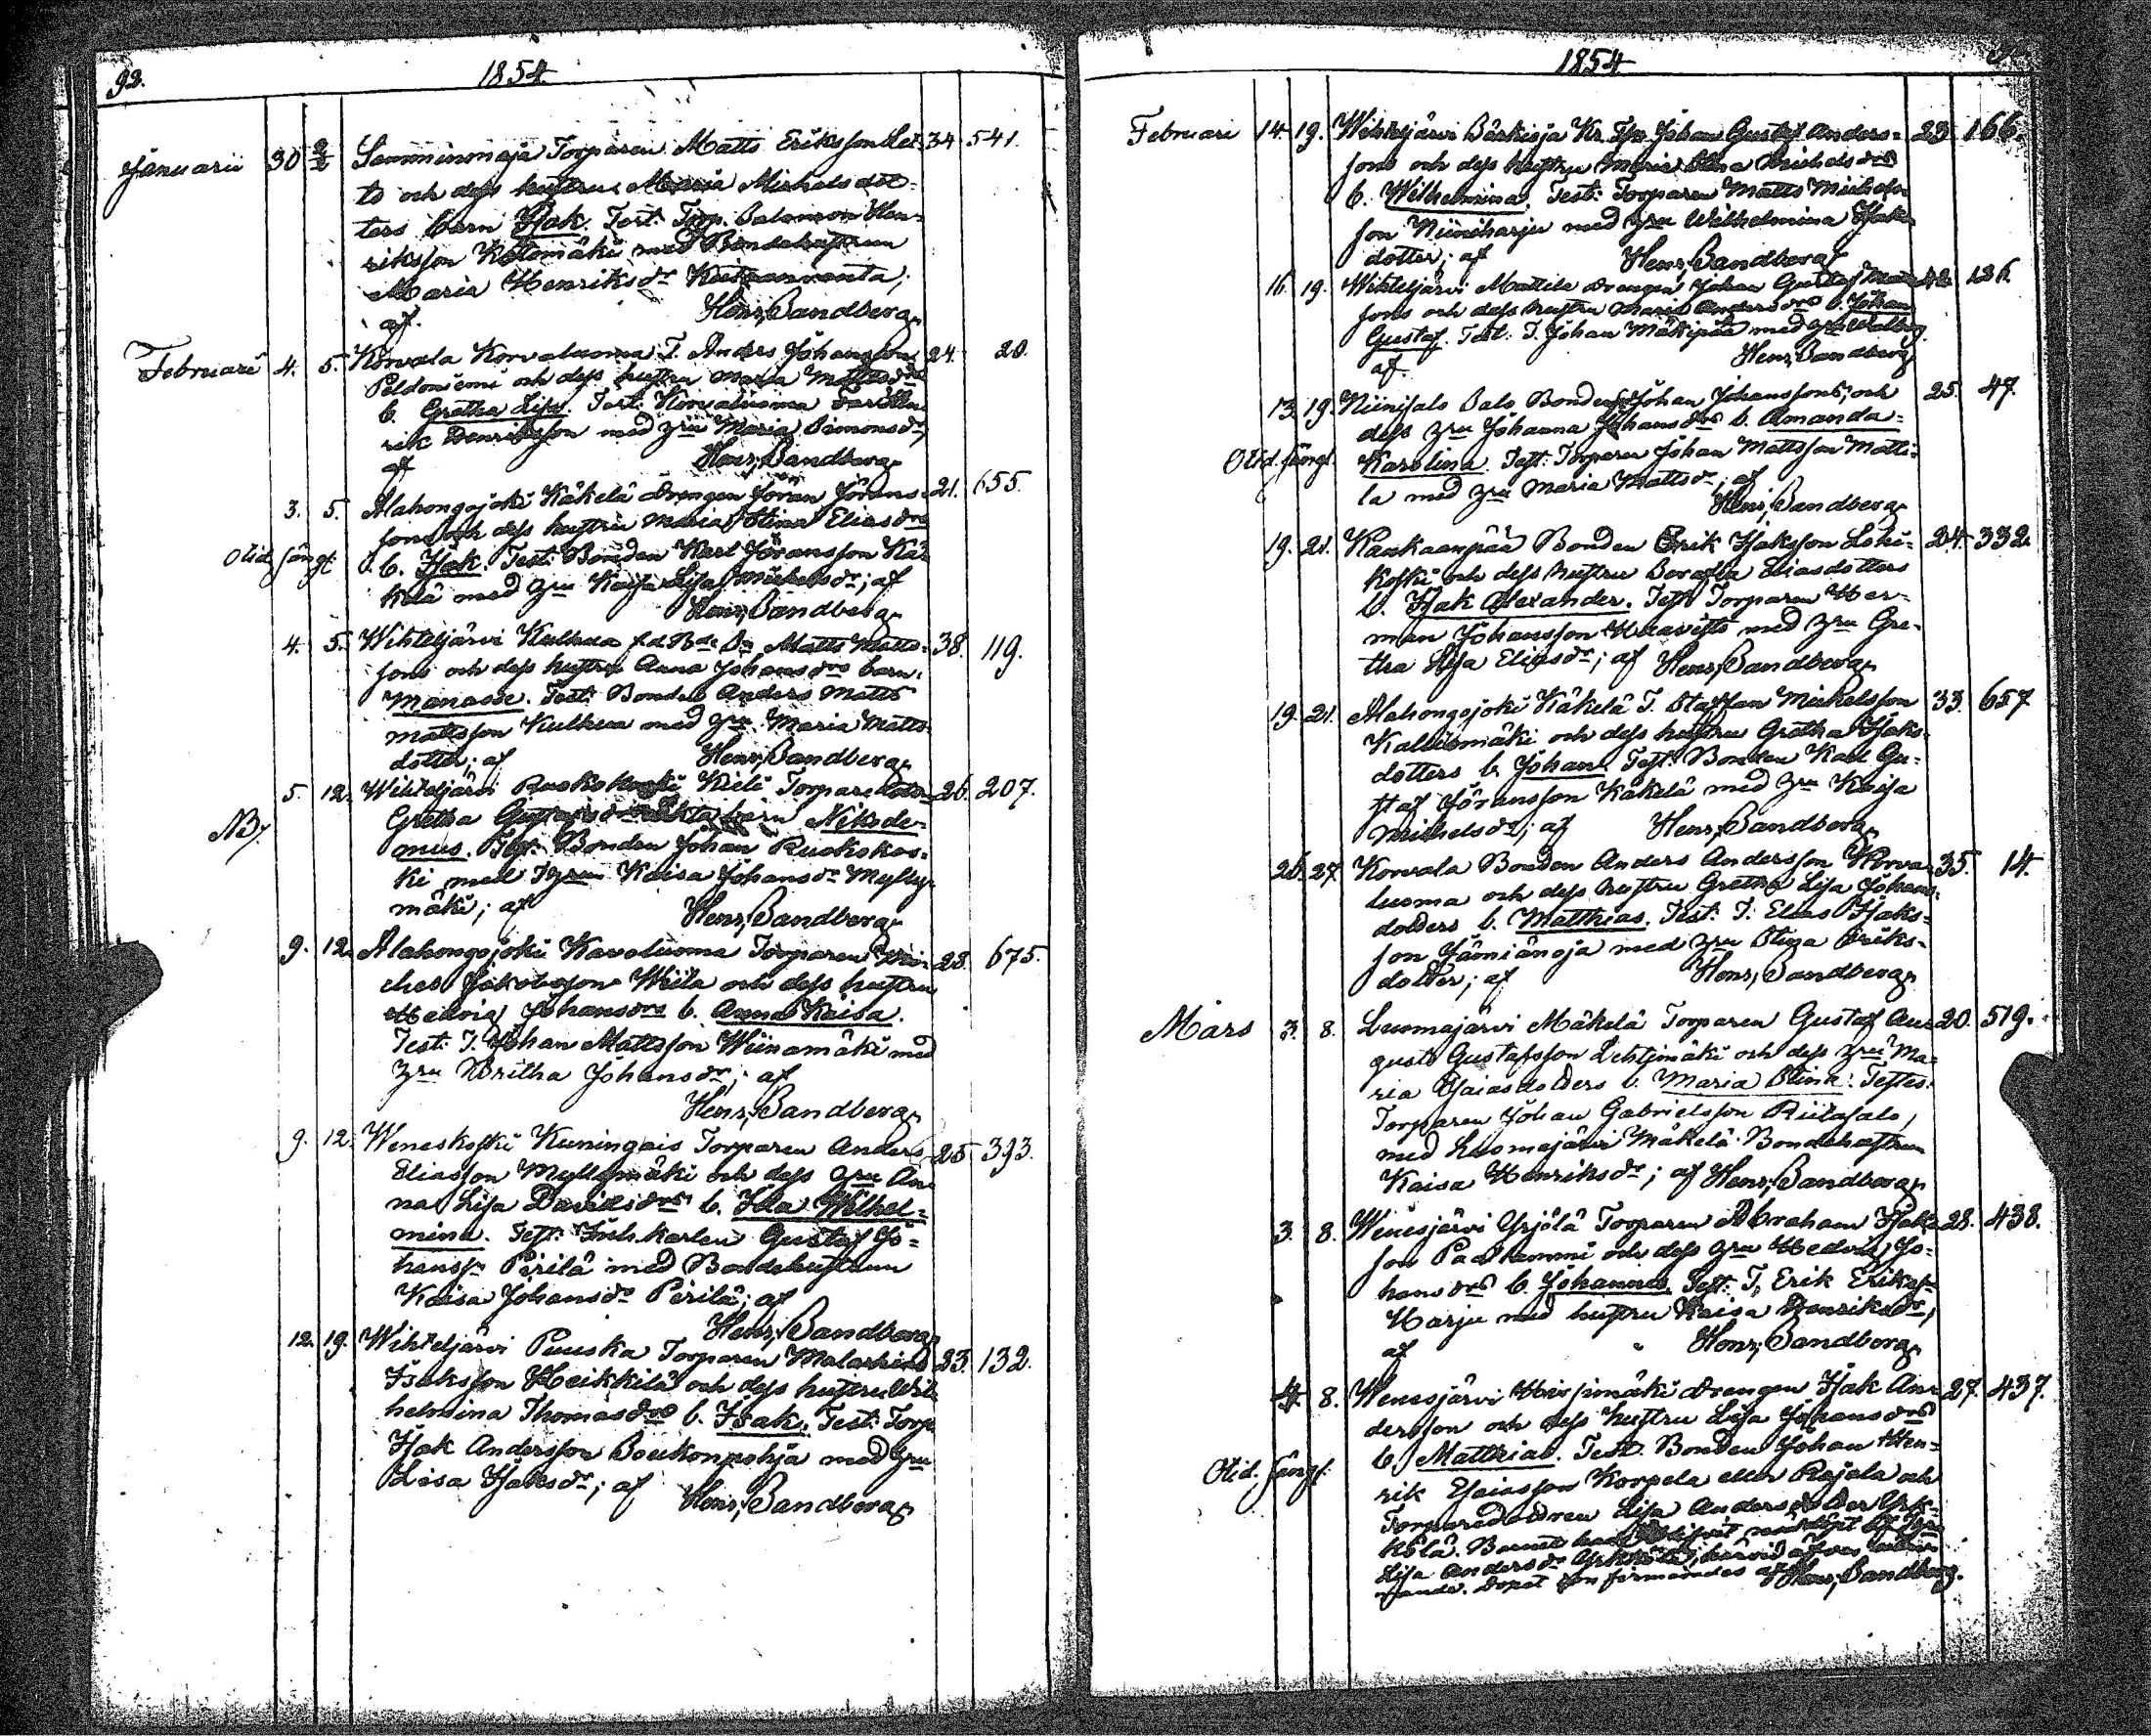 92.
1854
Januarii 30 2/2 Somminoja Torparen Matts Eriksson Let- 34 541.
to och dess hustrus Maria Michelsdot-
ters barn Isak. Test: Torp. Salomon Hen-
riksson Kotomäki med Bondehustrun
Maria Henriksdr
af. Henr; Sandberg
Februari 4. 5. Korvala Korvaluoma T. Anders Johansson 24. 20.
Peldoniemi och dess hustru Maria Mattsdrs
b. Gretha Lisa. Test: Korvaluoma
rik Henriksson med hru Maria Simonsdr,
af Henr; Sandberg
3. 5. Alahongojoki Käkelä Drengen Jöran Jörans- 21. 655.
sons och dess hustru Maria Stina Eliasdrs
Otid. fängt. b. Isak. Test: Bonden Karl Jöransson Kä-
kelä med hru Kaisa Lisa Michelsdr; af
Henr; Sandberg
4. 5. Wihteljärvi Kulhua f.d. Bde Sn Matts Matts- 38. 119.
sons och dess hustru Anna Johansdrs barn
Manasse. Test: Bonden Anders Matts
mattsson Kulhua med hru Maria Matts-
dotter; af Henr; Sandberg
5. 12. Wihteljärvi Ruokokoski Kieli Torpare 26. 207.
Gretha barn Nikode-
NB. mus. Test: Bonden Johan Ruokokos-
ki med Kaisa Johansdr Mylly-
mäki; af Henr; Sandberg
9. 12. Alahongojoki Kavoluoma Torparen Mi- 28. 675.
chel Jakobsson Wiila och dess hustru
Hedvig Johansdrs b. Anna Kaisa.
Test: T. Johan Mattsson Wiinamäki med
hru Britha Johansdr; af
Henr; Sandberg
9. 12. Weneskoski Kuningais Torparen Anders 25. 393.
Eliasson Myllymäki och dess hru An-
na Lisa Davidsdrs b. Ida Wilhel-
mina. Test: Inh. karlen Gustaf Jo-
hanss. Pirilä med Bondehustrun
Kaisa Johansdr Perilä; af
Henr; Sandberg
12. 19. Wihteljärvi Puuska Torparen Malakias 23. 132.
Isaksson Heikkilä och dess hustru Wil-
helmina Thomasdrs b. Isak. Test: Torp.
Isak Andersson Boukonpohja med hru
Lisa Isaksdr; af Henr; Sandberg
1854
Februari 14. 19. Wihteljärvi Johan Gustaf Anders- 23. 166.
sons och dess hustru Maria Stina Michelsdrs
b. Wilhelmina. Test: Torparen Matts Michels-
son Niiniharju med hru Wilhelmina Isaks-
dotter; af Henr; Sandberg
16. 19. Wihteljärvi Mattila Drengen Johan Gustaf 136.
sons och dess hustru Maria Andersdrs b. Johan
Gustaf. Test: T. Johan Mäkipää med hru
af. Henr; Sandberg
13. 19. Niinisalo Salo Bonden Johan Johanssons och 25. 47.
dess hru Johanna Johansdrs b. Amanda
Otid. fängt. Karolina. Test: Torparen Johan Mattsson Matti-
la med hru Maria Mattsdr; af
Henr; Sandberg
19. 21. Kankaanpää Bonden Erik Isaksson Lohi- 24. 332.
koski och dess hustru Serafia Eliasdotters
b. Isak Alexander. Test: Torparen Her-
man Johansson Haavisto med hru Gre-
tha Lisa Eliasdr; af Henr; Sandberg
19. 21. Alahongojoki Käkelä T. Staffan Mickelsson 33. 657
Kalliomäki och dess hustru Gretha Isaks-
dotters b. Johan. Test: Bonden Karl Gu-
staf Jöransson Käkelä med hru Kaisa
Michelsdr; af Henr; Sandberg
26. 27. Korvala Bonden Anders Andersson Korva- 35. 14.
luoma och dess hustru Gretha Lisa Johans-
dotters b. Matthias. Test: T. Elias Isaks-
son Jämiänoja med hru Stina Eriks-
dotter; af Henr; Sandberg
Mars 3. 8. Luomajärvi Mäkelä Torparen Gustaf Au- 20. 519.
gust Gustafsson Lehtimäki och dess hru Ma-
ria Esaiasdotters b. Maria Stina. Testes:
Torparen Johan Gabrielsson Riitasalo,
med Luomajärvi Mäkelä Bondehustrun
Kaisa Henriksdr; af Henr; Sandberg
3. 8. Wenesjärvi Yrjölä Torparen Abraham Isaks- 28. 438.
son och dess hru Hedvig Jo-
hansdrs b. Johannes. Test: T. Erik Eriksson
Harju med hustru Kaisa Henriksdr,
af Henr; Sandberg
4. 8. Wenesjärvi Hirsimäki Drengen Isak An- 27. 437.
dersson och dess hustru Lisa Johansdrs
b. Matthias. Test. Bonden Johan Hen-
Otid. fängt. rik Esaiasson Korpela eller Rajala och
Torparedottren Lisa Andersdotter Yrk-
kölä. Barnet
Lisa Andersdr
Dopet af Henr; Sandberg.